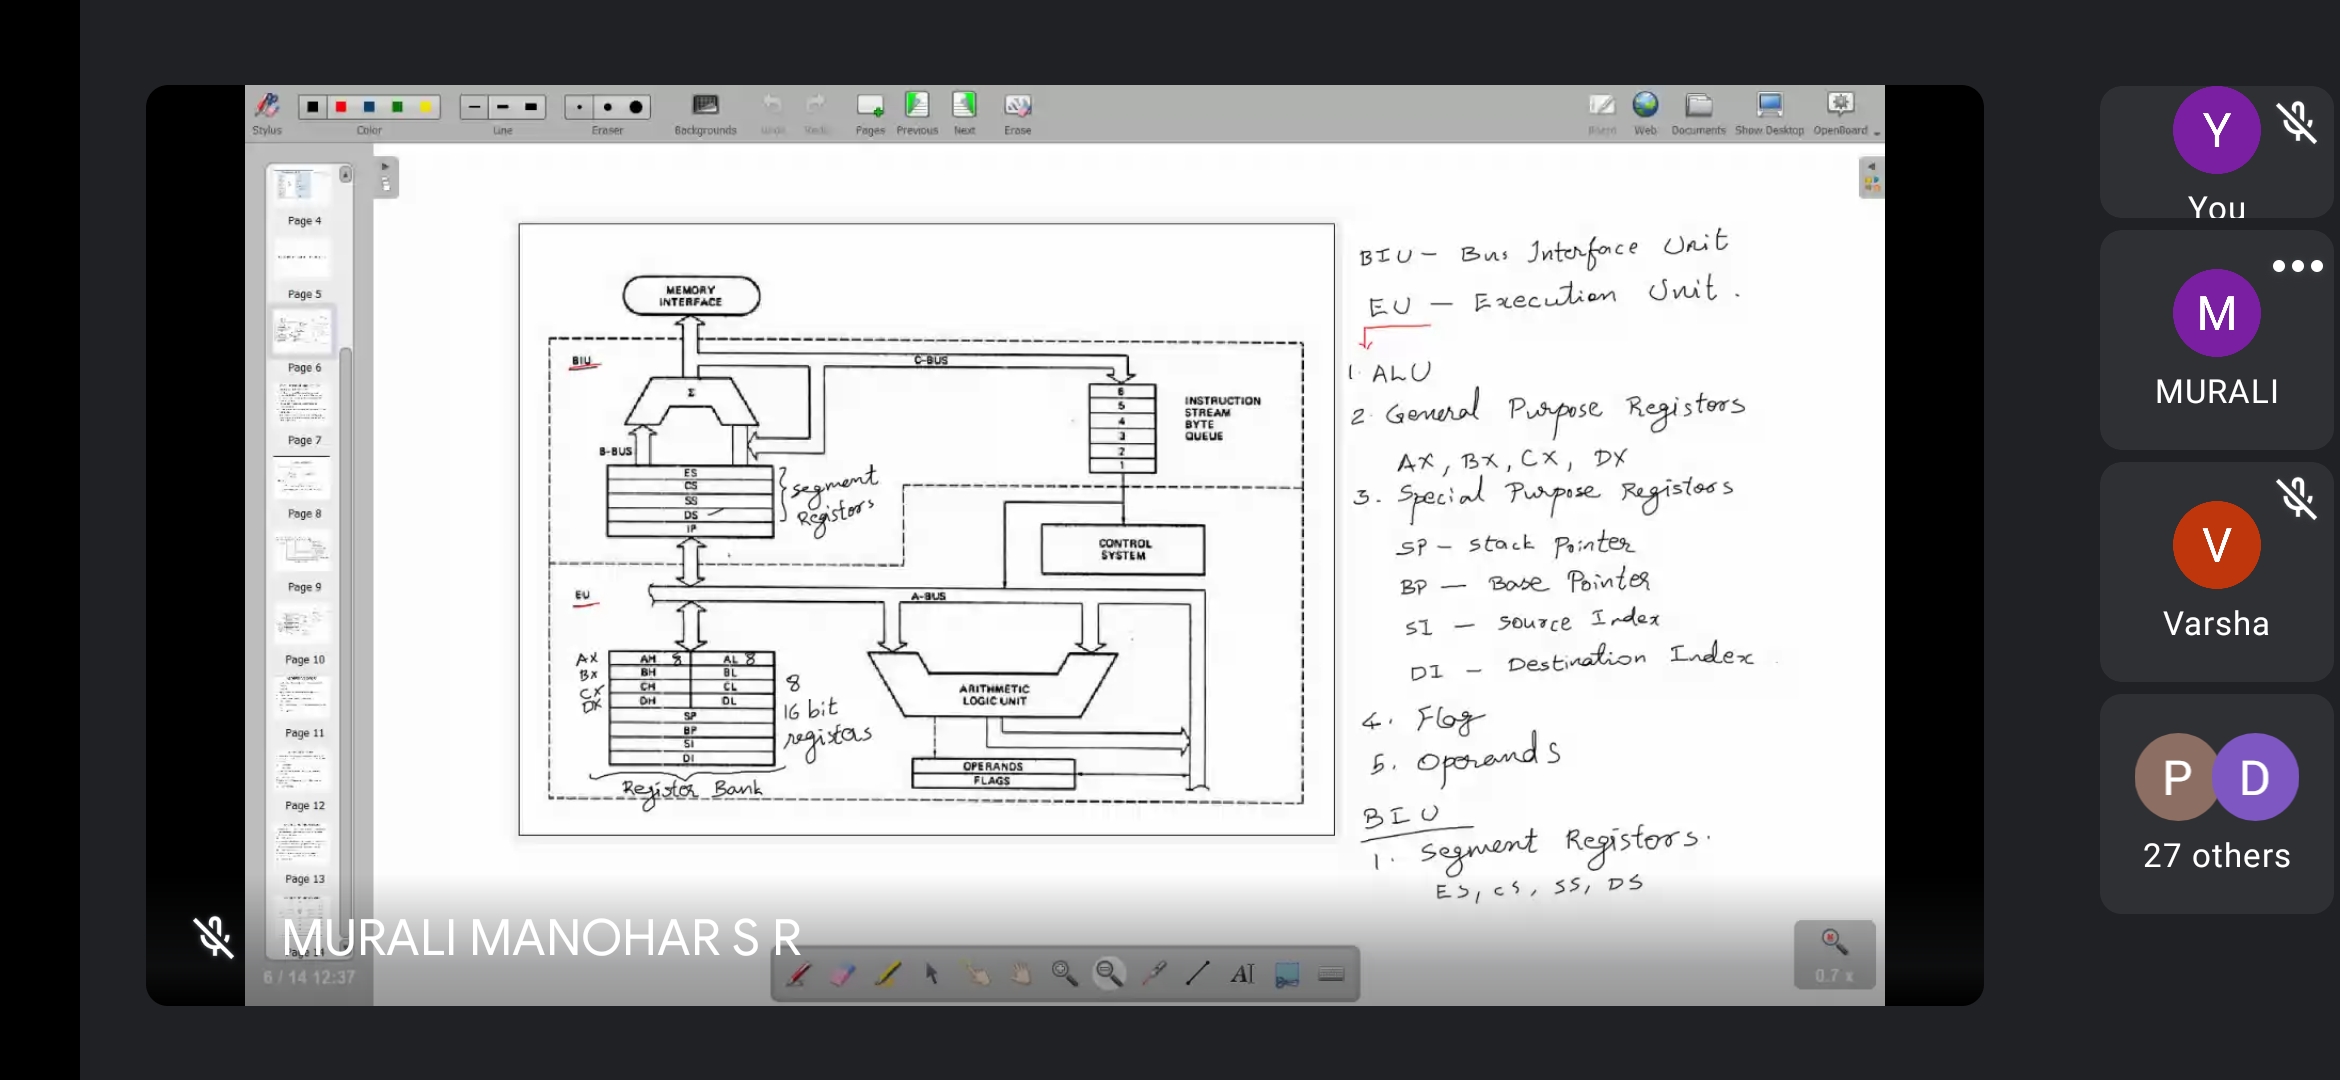 Stylus
Color
Line
Eraser
Backgrounds
Undo
Redo
Pages
Previous
Next
Erase
Board
Web
Documents
Show Desktop
OpenBoard
Page 4
Page 5
Page 6
Page 7
Page 8
Page 9
Page 10
Page 11
Page 12
Page 13
Page 14
6 / 14 12:37
MEMORY
INTERFACE
BIU
C-BUS
Σ
B-BUS
ES
CS
SS
DS
IP
Segment
Registors
6
5
4
3
2
1
INSTRUCTION
STREAM
BYTE
QUEUE
CONTROL
SYSTEM
EU
A-BUS
AX AH 8 AL 8
BX BH BL
CX CH CL
DX DH DL
SP
BP
SI
DI
8
16 bit
registors
Registor Bank
ARITHMETIC
LOGIC UNIT
OPERANDS
FLAGS
BIU - Bus Interface Unit
EU - Execution Unit.
1. ALU
2. General Purpose Registors
AX, BX, CX, DX
3. Special Purpose Registors
SP - Stack Pointer
BP - Base Pointer
SI - Source Index
DI - Destination Index
4. Flag
5. Operands
BIU
1. Segment Registors.
ES, CS, SS, DS
MURALI MANOHAR S R
AI
0.7 x
Y
You
M
MURALI
V
Varsha
P D
27 others